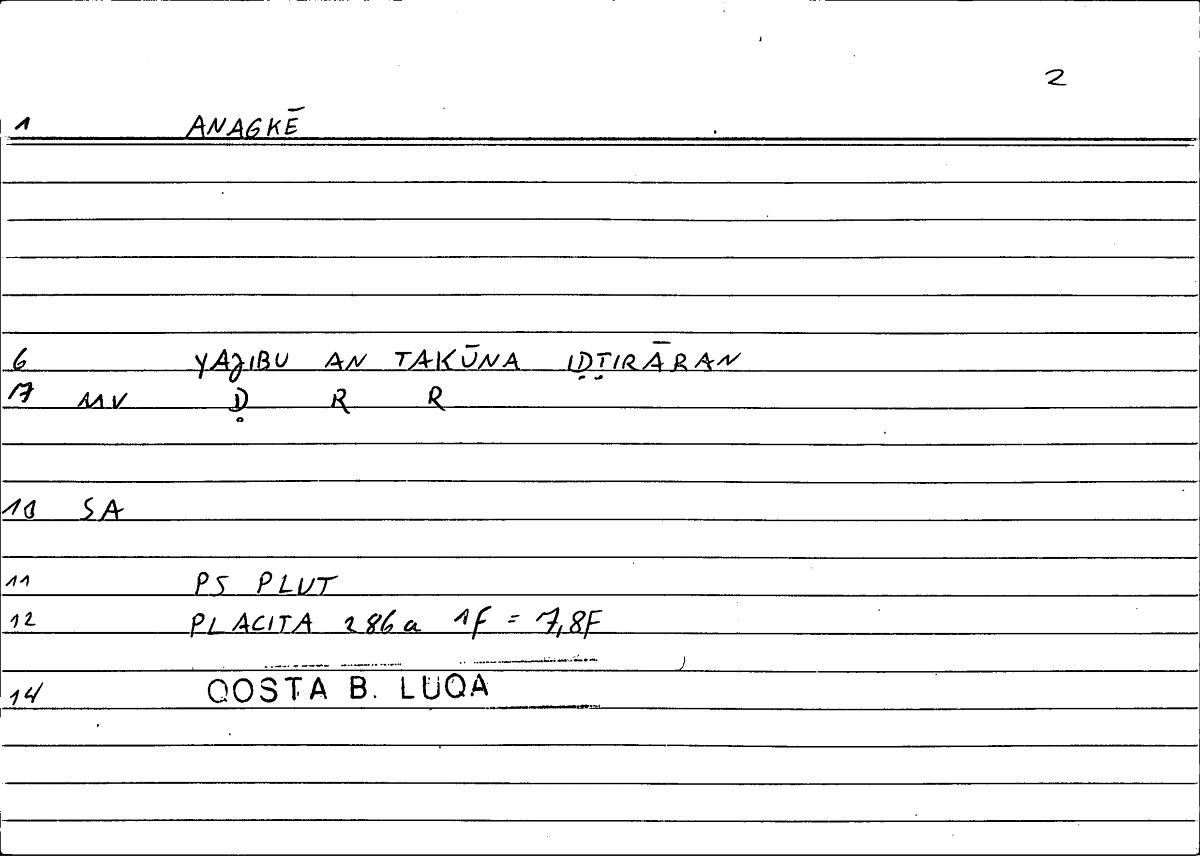 2
1 ANAGKĒ
6 YAJIBU AN TAKŪNA IḌṬIRĀRAN
17 MV Ḍ R R
10 SA
11 PS PLUT
12 PLACITA 286a 1F = 7,8F
14 QOSTA B. LUQA